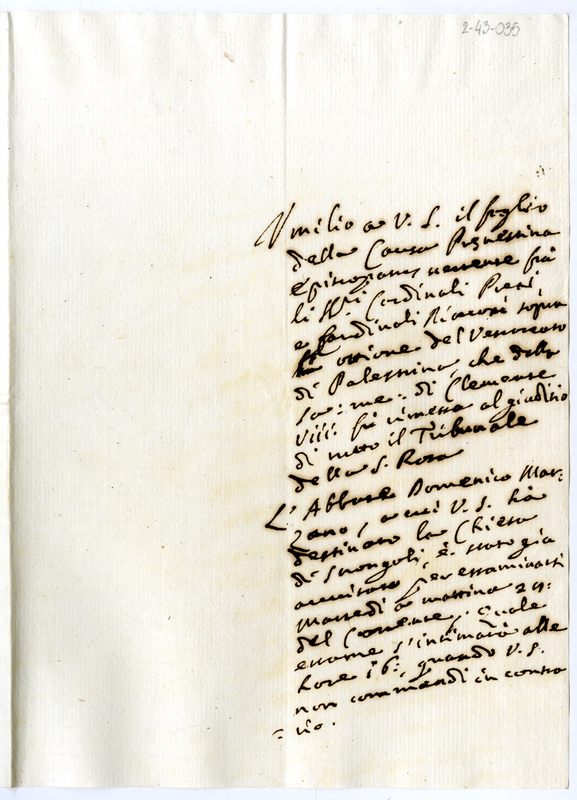 2-43-035
Umilio a V. S. il foglio
della Causa Prenestina
Episcopatus vertente frà
li SSri Cardinali Preti,
e Cardinali Vescovi sopra
ottione del Vescovato
di Palestrina, che dalla
sa: me: di Clemente
VIII: fù rimessa al giuditio
di tutto il Tribunale
della S. Rota
L'Abbate Domenico Mar:
zano, a cui V. S. hà
destinato la Chiesa
di Strongoli è stato già
avvisato per essaminarsi
Martedì a mattina 29:
del Corrente, quale
essame s'intimarà alle
hore 16: quando V. S.
non commandi in contra
= rio.